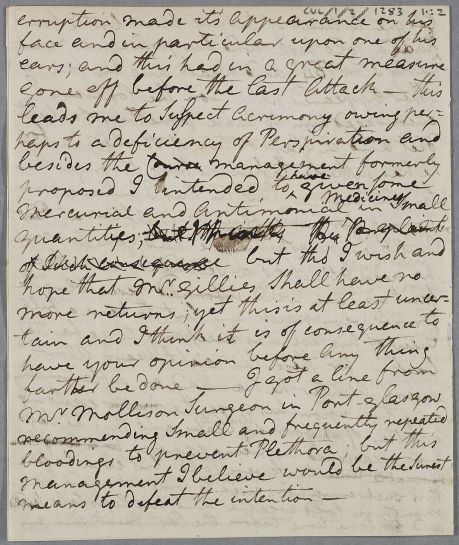 CUL/1/2/1283 1:2
erruption made its appearance on his
face and in particular upon one of his
ears; and this had in a great measure
gone off before the last Attack — this
leads me to Suspect acrimony owing per=
haps to a deficiency of Perspiration and
besides the Course management formerly
proposed I intended to have given some
Mercurial and Antimonial Medicines in Small
quantities, the Complaint
of Such consequence but tho I wish and
hope that Mr. Gillies Shall have no
more returns; yet this is at least uncer-
tain and I think it is of consequence to
have your opinion before any thing
farther be done — I got a line from
Mr Mollison Surgeon in Port Glasgow
recommending Small and frequently repeated
bloodings to prevent Plethora, but this
management I believe would be the surest
means to defeat the intention —